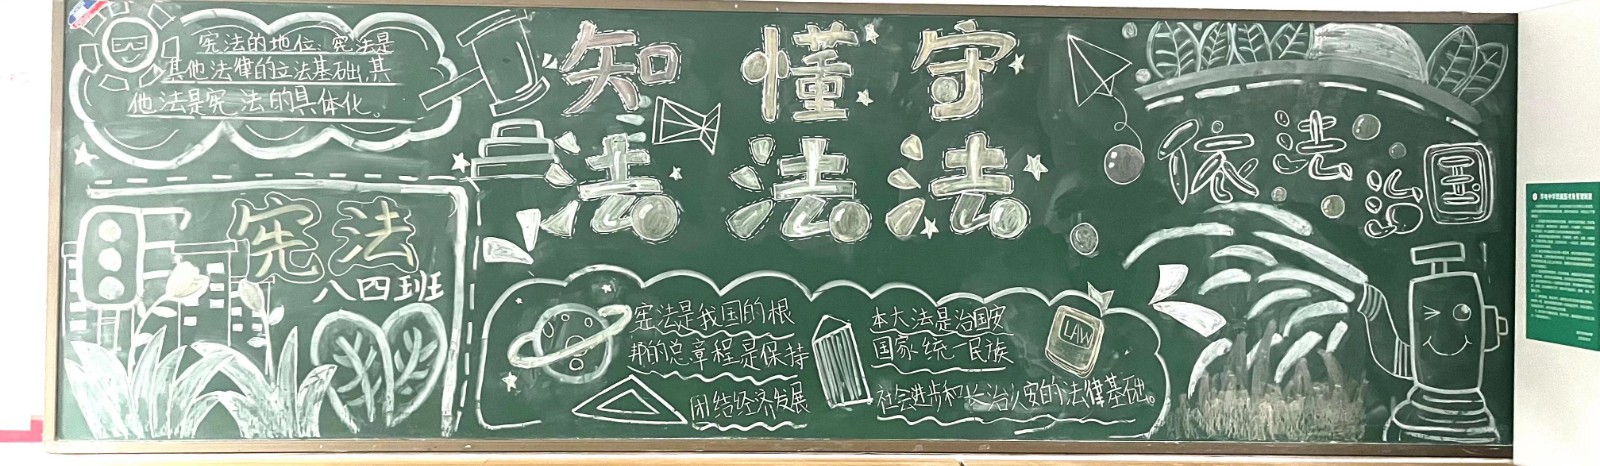 宪法的地位:宪法是
其他法律的立法基础,其
他法是宪法的具体化。
知 懂 守
法 法 法
依法治国
宪法
八四班
宪法是我国的根
邦的总章程,是保持
团结经济发展
本大法是治国安
国家统一民族
社会进步和长治久安的法律基础。
LAW